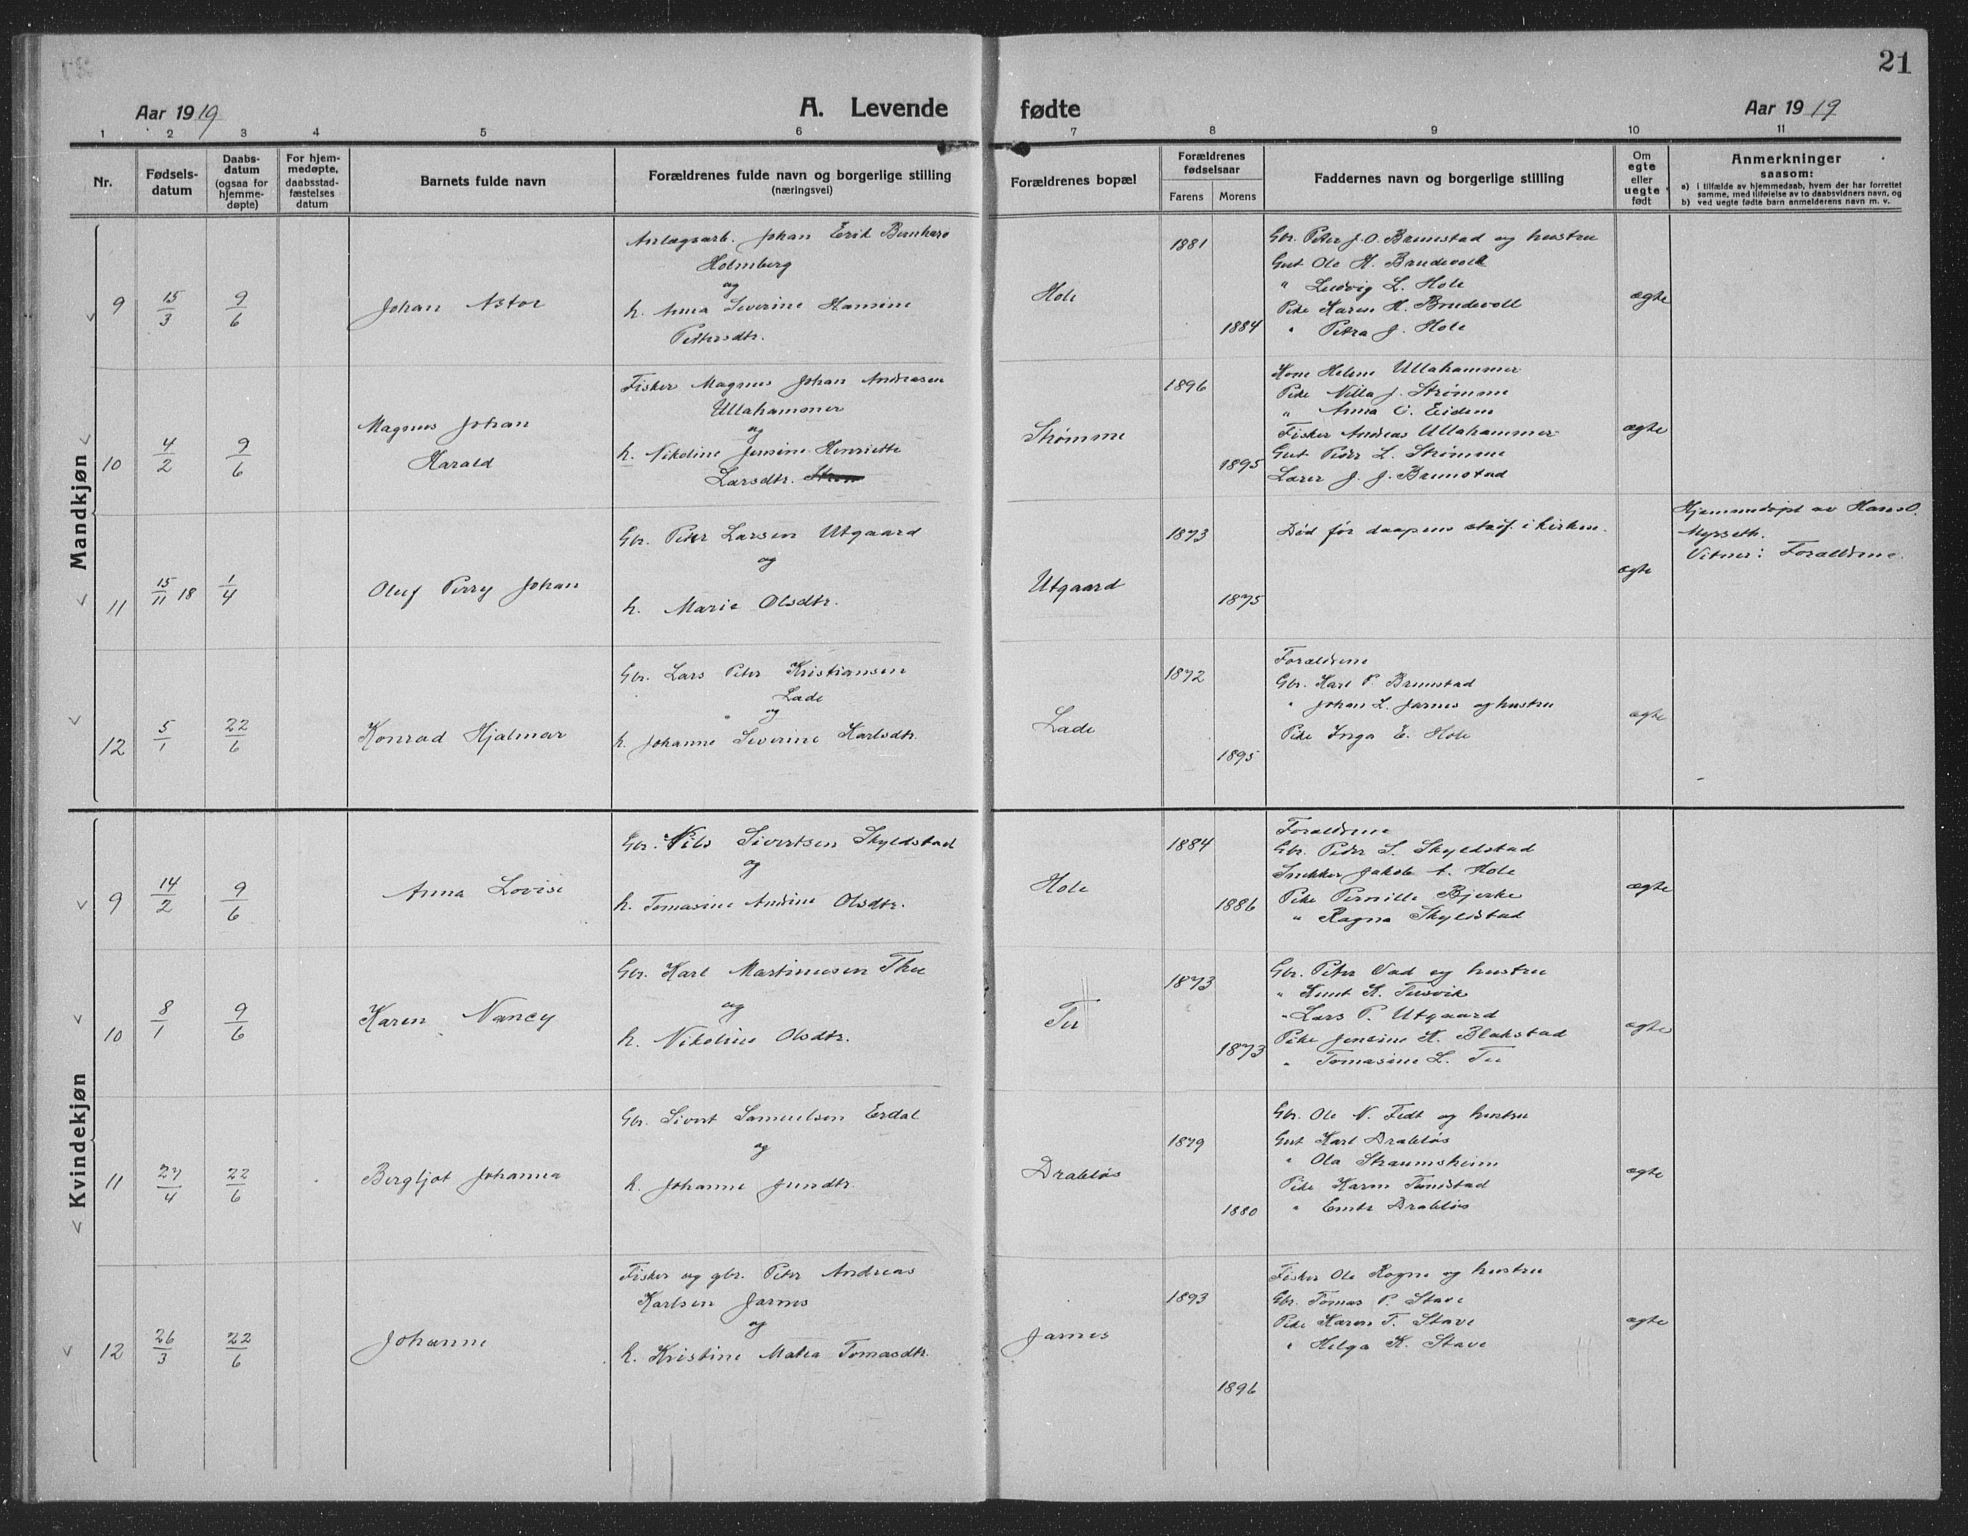 21
Aar 1919
A. Levende fødte
Aar 1919
1 2 3 4 5 6 7 8 9 10 11
Nr.
Fødsels-
datum
Daabs-
datum
(ogsaa for
hjemme-
døpte)
For hjem-
medøpte,
daabsstad-
fæstelses
datum
Barnets fulde navn
Forældrenes fulde navn og borgerlige stilling
(næringsvei)
Forældrenes bopæl
Forældrenes
fødselsaar
Farens Morens
Faddernes navn og borgerlige stilling
Om
egte
eller
uegte
født
Anmerkninger
saasom:
a) i tilfælde av hjemmedaab, hvem der har forrettet
samme, med tilføielse av to daabsvidners navn, og
b) ved uegte fødte barn anmelderens navn m. v.
Mandkjøn
9 15/3 9/6 Johan Astor
Anlægsarb. Johan Erik Bernhard
Holmberg
og
h. Anna Severine Hansine
Pettersdtr.
Hole
1881
1884
Gbr. Peter J. O. Brunstad og hustru
Gut Ole H. Brudevoll
" Ludvig L. Hole
Pike Karen H. Brudevoll
" Petra J. Hole
ægte
10 4/2 9/6
Magnus Johan
Harald
Fisker Magnus Johan Andreasen
Ullahammer
og
h. Nikoline Jensine Henriette
Larsdtr.
Strømme
1896
1895
Kone Helene Ullahammer
Pike Nilla J. Strømme
" Anna O. Eidem
Fisker Andreas Ullahammer
Gut Peder L. Strømme
Lærer J. J. Brunstad
ægte
11 15/11 18 1/4 Oluf Perry Johan
Gbr. Peder Larsen Utgaard
og
h. Marie Olsdtr.
Utgaard
1873
1875
Død før daapens stadf. i kirken.
ægte
Hjemmedøpt av Hans O.
Myrseth.
Vitner: Forældrene.
12 5/1 22/6 Konrad Hjalmar
Gbr. Lars Peter Kristiansen
Lade
og
h. Johanne Severine Karlsdtr.
Lade
1872
1895
Forældrene
Gbr. Karl P. Brunstad
" Johan L. Jarnes og hustru
Pike Inga E. Hole
ægte
Kvindekjøn
9 14/2 9/6 Anna Lovise
Gbr. Nils Sivertsen Skyldstad
og
h. Tomasine Andine Olsdtr.
Hole
1884
1886
Forældrene
Gbr. Peder S. Skyldstad
Snekker Jakob A. Hole
Pike Pernille Bjerke
" Ragna Skyldstad
ægte
10 8/1 9/6 Karen Nancy
Gbr. Karl Martinusen Thu
og
h. Nikoline Olsdtr.
Tu
1873
1873
Gbr. Peter Vad og hustru
" Knut K. Tusvik
" Lars P. Utgaard
Pike Jensine K. Blakstad
" Tomasine L. Tu
ægte
11 27/4 22/6 Bergljot Johanna
Gbr. Sivert Samuelsen Erdal
og
h. Johanne Jundtr.
Drabløs
1879
1880
Gbr. Ole N. Fedt og hustru
Gut Karl Drabløs
" Ola Straumsheim
Pike Karen Tunstad
" Emte Drabløs
ægte
12 26/3 22/6 Johanne
Fisker og gbr. Peter Andreas
Karlsen Jarnes
og
h. Kristine Matea Tomasdtr.
Jarnes
1893
1896
Fisker Ole Rogne og hustru
Gbr. Tomas P. Stave
Pike Karen T. Stave
" Helga K. Stave
ægte